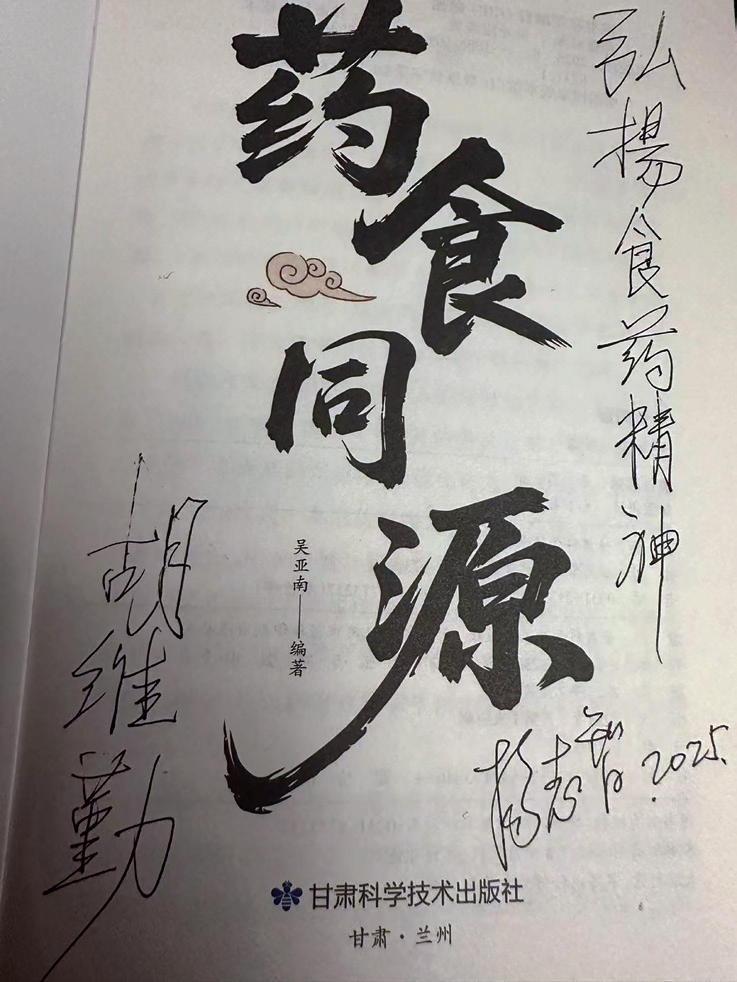 药食同源
吴亚南——编著
甘肃科学技术出版社
甘肃·兰州
弘揚食药精神
杨志智.2025.
胡维勤